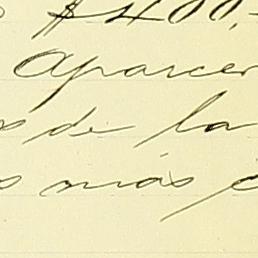 $400.-
aparcer
de la
más